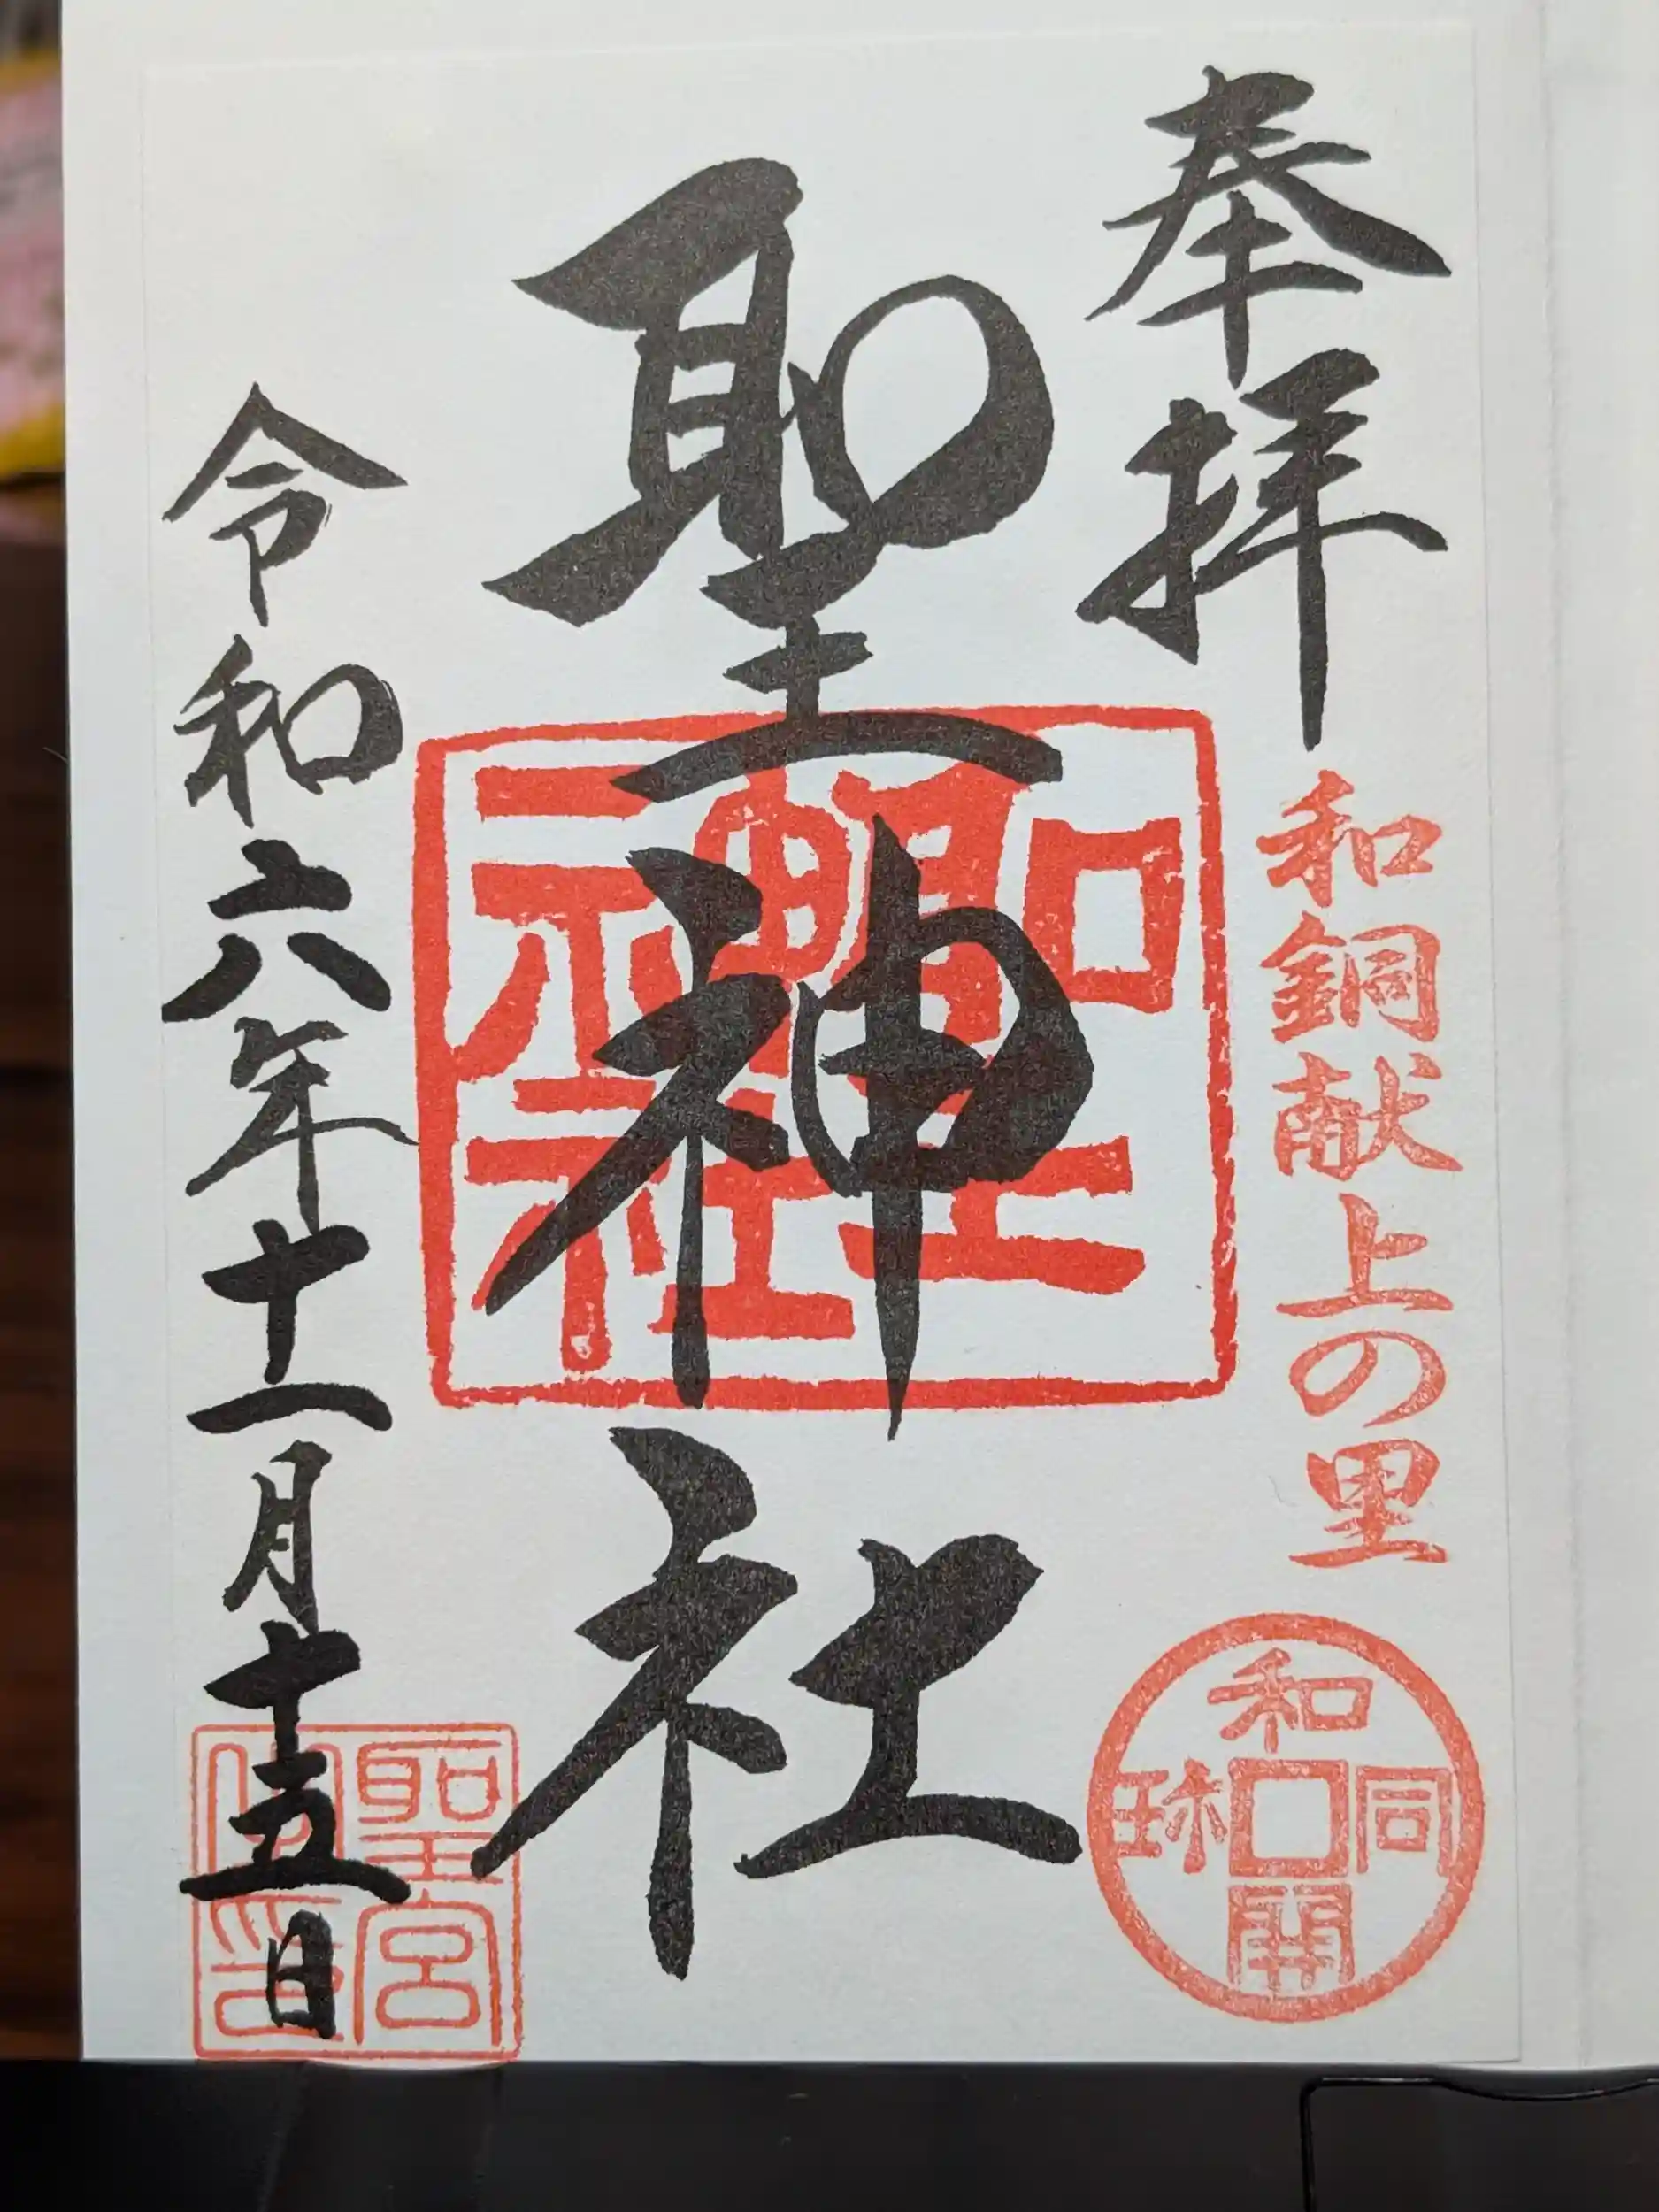 奉拝
和銅献上の里
和同開珎
聖神社
聖神社
令和六年十一月十五日
聖宮